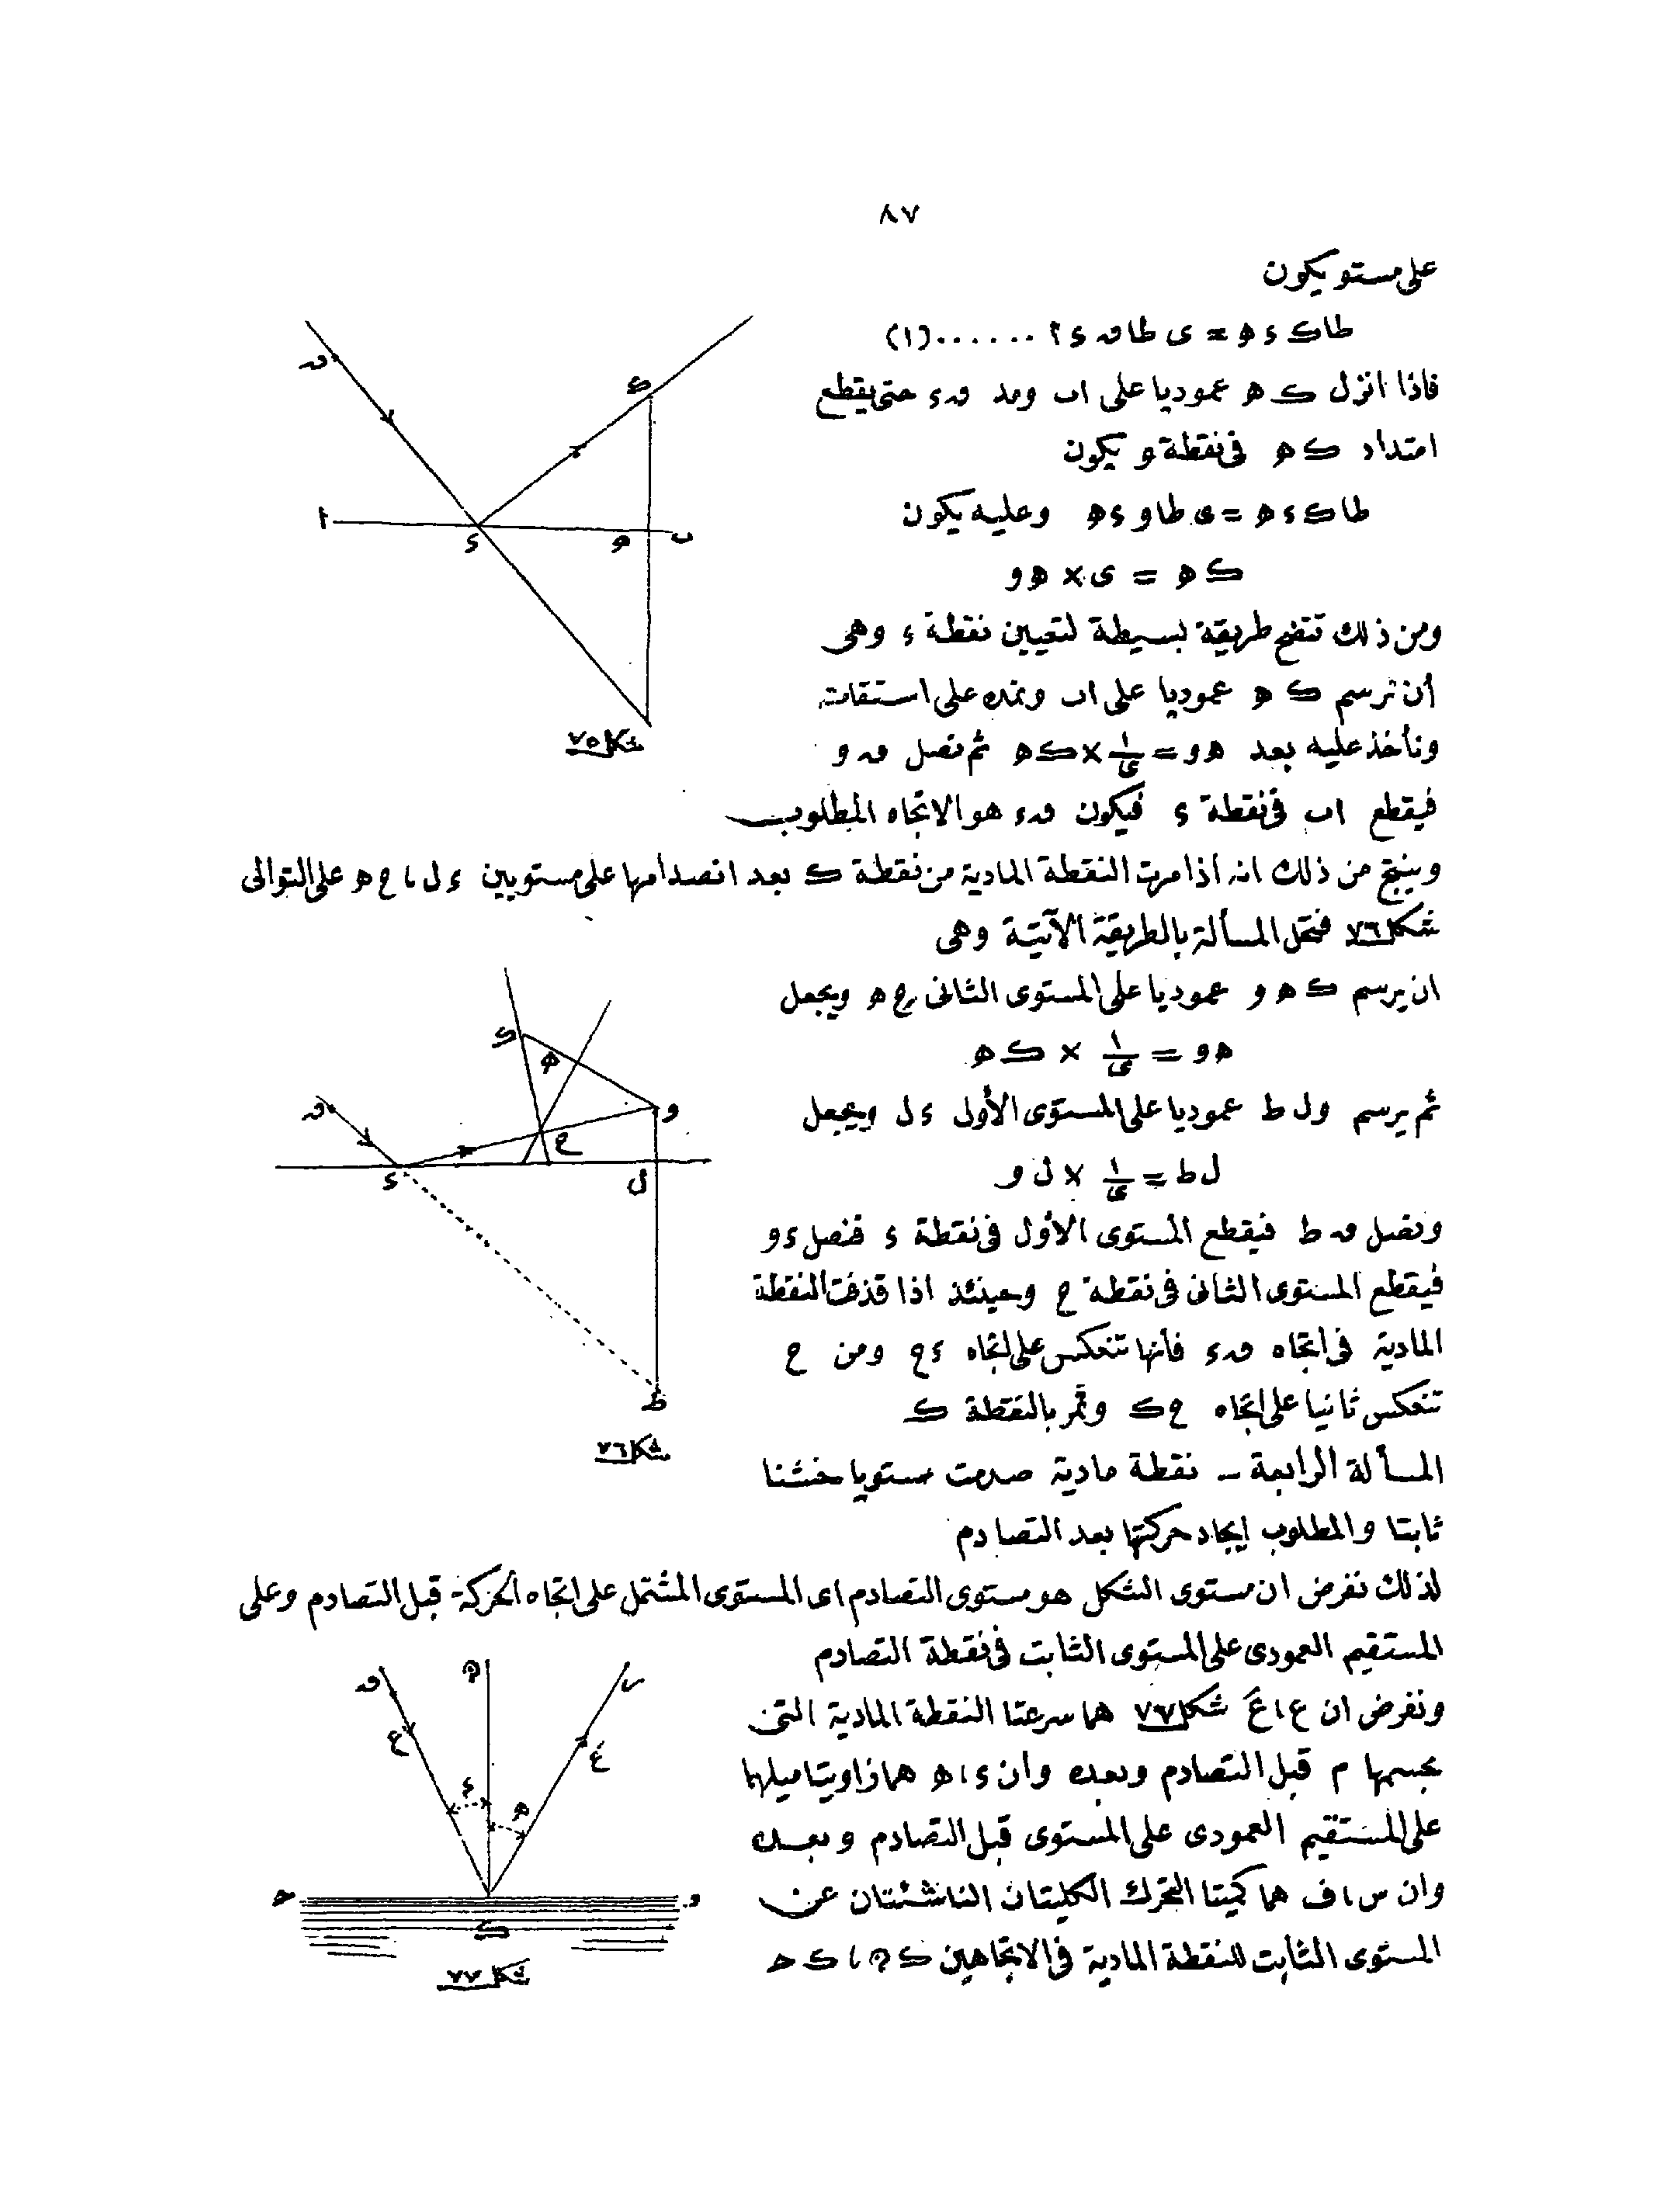 ٨٧
على مستو يكون
طا ك ء ه = ى طا ٯ ء ا ......(١)
فاذا انزل ك ه عموديا على اب ومد ٯء حتى يقطع
امتداد ك ه فى نقطة و يكون
طا ك ء ه = ى طا و ء ه وعليه يكون
ك ه = ى × ه و
ومن ذلك تتضح طريقة بسيطة لتعيين نقطة ء وهى
أن نرسم ك ه عموديا على اب ونمده على استقامته
ونأخذ عليه بعد ه و = ١/ى × ك ه ثم نصل ٯ و
فيقطع اب فى نقطة ء فيكون ٯء هو الاتجاه المطلوب
وينتج من ذلك انه اذا مرت النقطة المادية من نقطة ك بعد انصدامها على مستويين ء ل ، ح ه على التوالى
شكل ٧٦ فتحل المسألة بالطريقة الآتية وهى
ان يرسم ك ه و عموديا على المستوى الثانى ح ه ويجعل
ه و = ١/ى × ك ه
ثم يرسم و ل ط عموديا على المستوى الأول ء ل ويجعل
ل ط = ١/ى × ل و
ونصل ٯ ط فيقطع المستوى الأول فى نقطة ء فنصل ء و
فيقطع المستوى الثانى فى نقطة ح وحينئذ اذا قذفت النقطة
المادية فى اتجاه ٯء فأنها تنعكس على اتجاه ء ح ومن ح
تنعكس ثانيا على اتجاه ح ك وتمر بالنقطة ك
المسألة الرابعة – نقطة مادية صدمت مستويا خشنا
ثابتا والمطلوب إيجاد حركتها بعد التصادم
لذلك نفرض ان مستوى الشكل هو مستوى التصادم اى المستوى المشتمل على اتجاه الحركة قبل التصادم وعلى
المستقيم العمودى على المستوى الثابت فى نقطة التصادم
ونفرض ان ع ، عَ شكل ٧٧ هما سرعتا النقطة المادية التى
جسمها م قبل التصادم وبعده وان ء ، ه هما زاويتا ميلهما
على المستقيم العمودى على المستوى قبل التصادم وبعده
وان س ، ف هما كميتا التحرك الكليتان الناشئتان عن
المستوى الثابت للنقطة المادية فى الاتجاهين ك م ، ك ح
ٯ
ك
ا
ء
ه
ب
شكل ٧٥
ك
ه
ٯ
و
ح
ء
ل
ط
شكل ٧٦
ٯ
م
ر
ع
عَ
ء
ه
ح
و
ك
شكل ٧٧